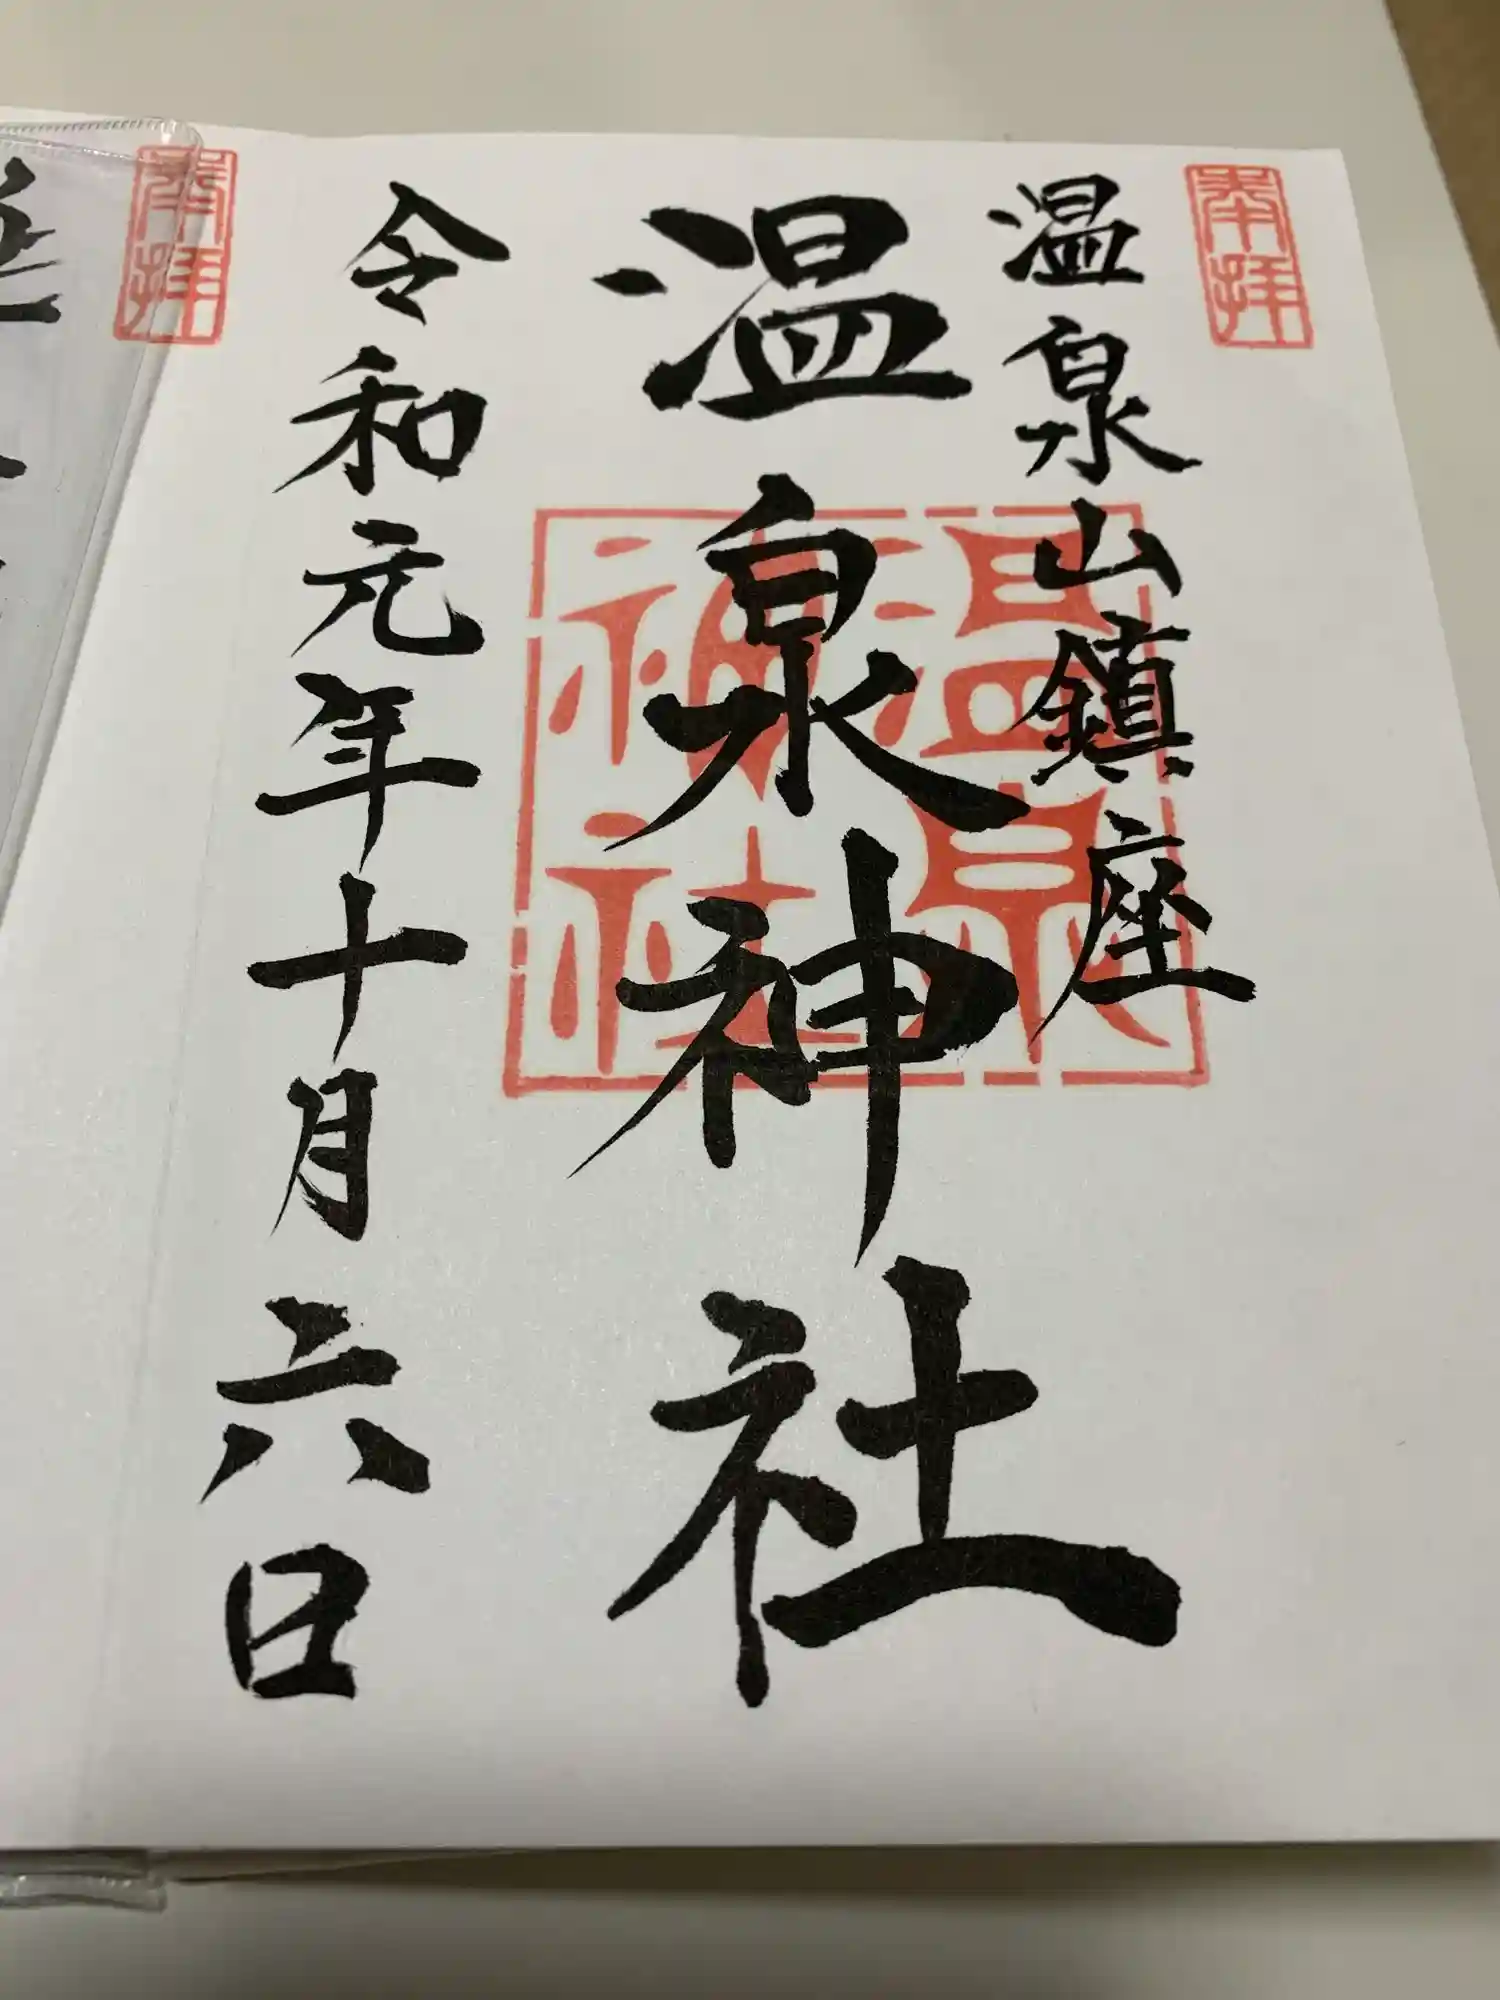 奉拝
温泉山鎮座
温泉神社
温泉
神社
令和元年十月六日
奉拝